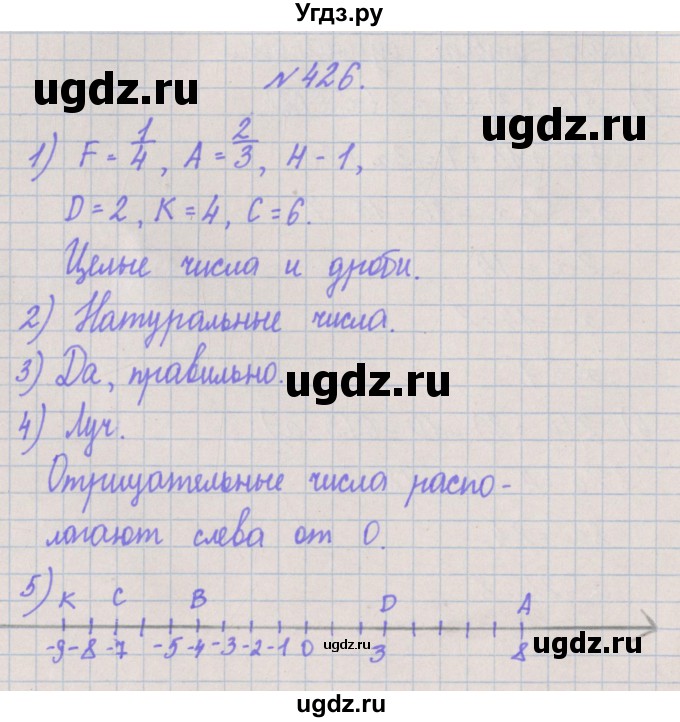 Угдз.ру
ugdz.ru
ugdz.ru
№426.
1) F = 1/4, A = 2/3, H - 1,
D = 2, K = 4, C = 6.
Целые числа и дроби.
2) Натуральные числа.
3) Да, правильно.
ugdz.ru
4) Луч.
Отрицательные числа распо-
логают слева от 0.
5) K C B D A
-9 -8 -7 -5 -4 -3 -2 -1 0 3 8
ugdz.ru
ugdz.ru
ugdz.ru
ugdz.ru